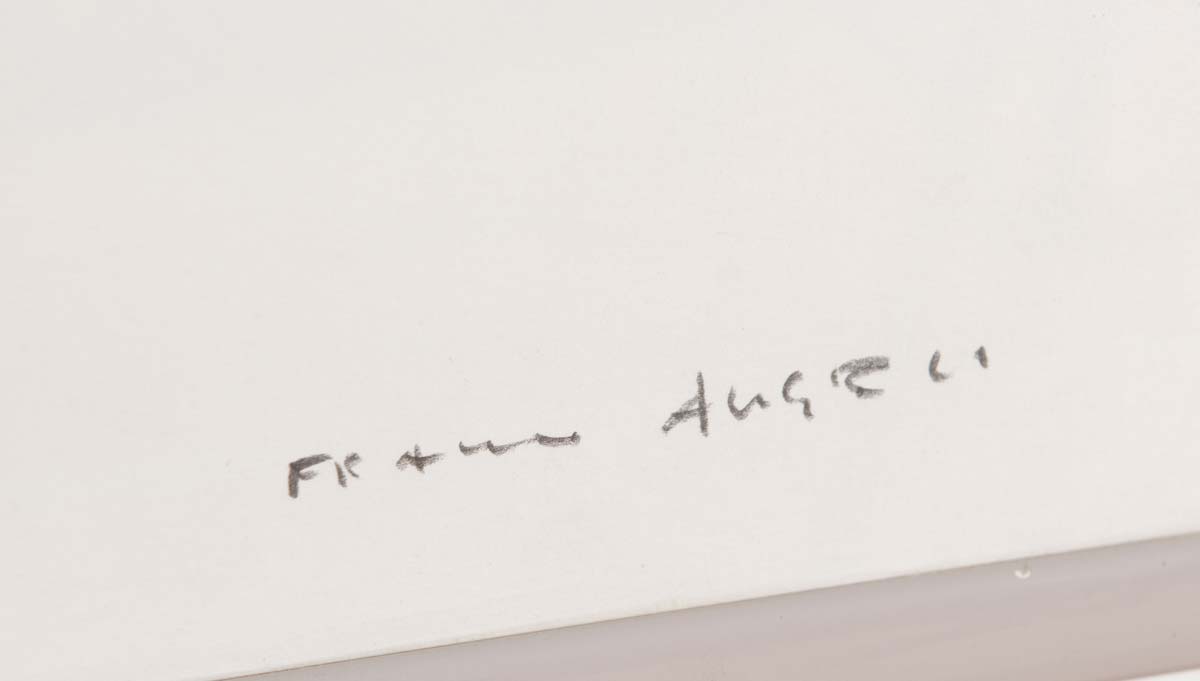 FRANCO ANGELI